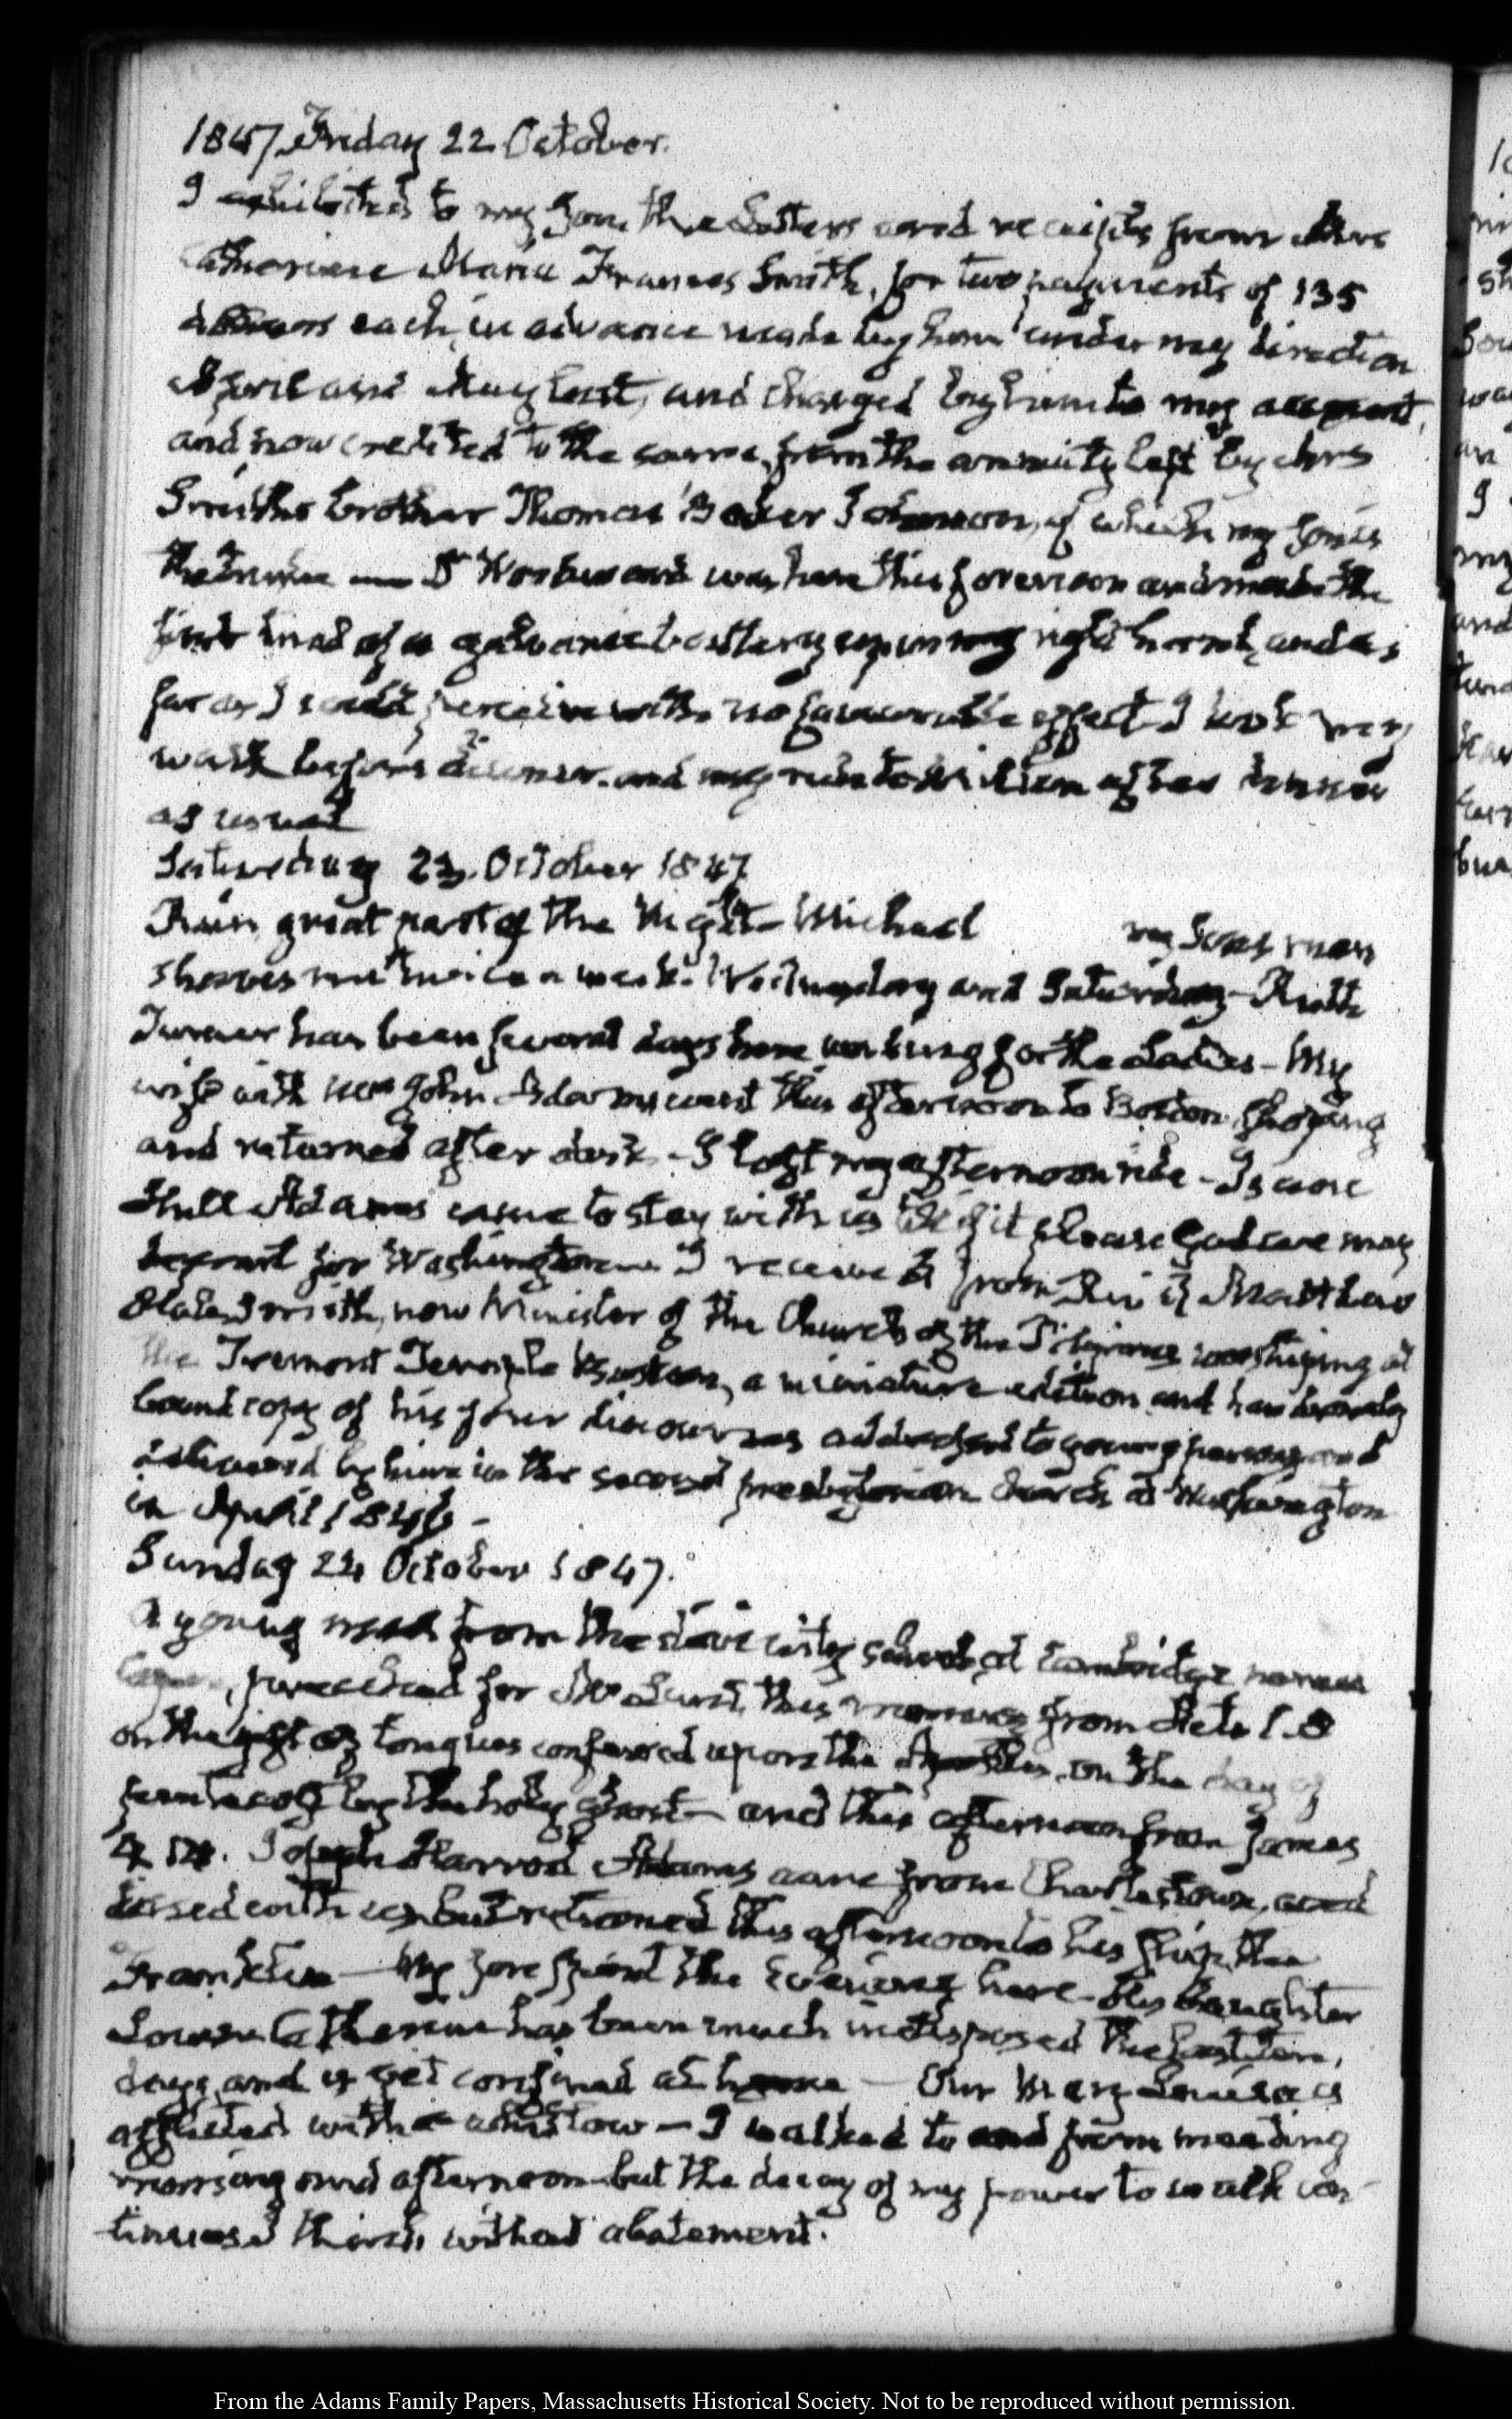 1847 Friday 22 October.
I exhibited to my Son, the Letters and receipts from Mrs
Catharine Maria Frances Smith, for two payments of 135
dollars each, in advance made by him under my direction
April and May last, and charged by him to my account,
and now credited to the same, from the annuity left by Mrs
Smith's brother Thomas Baker Johnson, of which my son is
the Trustee — Dr Woodward was here this forenoon and made the
first trial of a galvanic battery upon my right hand, and as
far as I could perceive with no favourable effect I took my
walk before dinner. and my ride to after dinner
as usual
Saturday 23. October 1847
Rain great part of the Night — Michael my Son's man
shaves me twice a week. Wednesday and Saturday — Ruth
Turner has been several days here working for the Ladies — My
wife with Mrs John Adams went this afternoon to Boston, shopping
and returned after dark — I lost my afternoon ride — Isaac
Hull Adams came to stay with us till if it please God we may
depart for Washington. I received from Revd Matthew
Hale Smith, now Minister of the Church of the Pilgrims worshipping at
the Tremont Temple Boston, a miniature edition and handsomely
bound copy of his four discourses addressed to young persons and
delivered by him in the second presbyterian church at Washington
in April 1846 —
Sunday 24 October 1847.
A young man from the divinity school at Cambridge named
preached for Mr Lunt, this morning from Acts 1.8
on the gift of tongues conferred upon the Apostles, on the day of
pentecost by the holy Ghost — and this afternoon from James
4. 14. Joseph Harrod Adams came from Charlestown, and
dined with us but returned this afternoon to his ship, the
Franklin — My son spent the evening here — His daughter
Louisa Catherine has been much indisposed the last ten
days, and is yet confined at home — Our Mary Louisa is
afflicted with a — I walked to and from meeting
morning and afternoon but the decay of my power to walk con-
tinues without abatement.
From the Adams Family Papers, Massachusetts Historical Society. Not to be reproduced without permission.